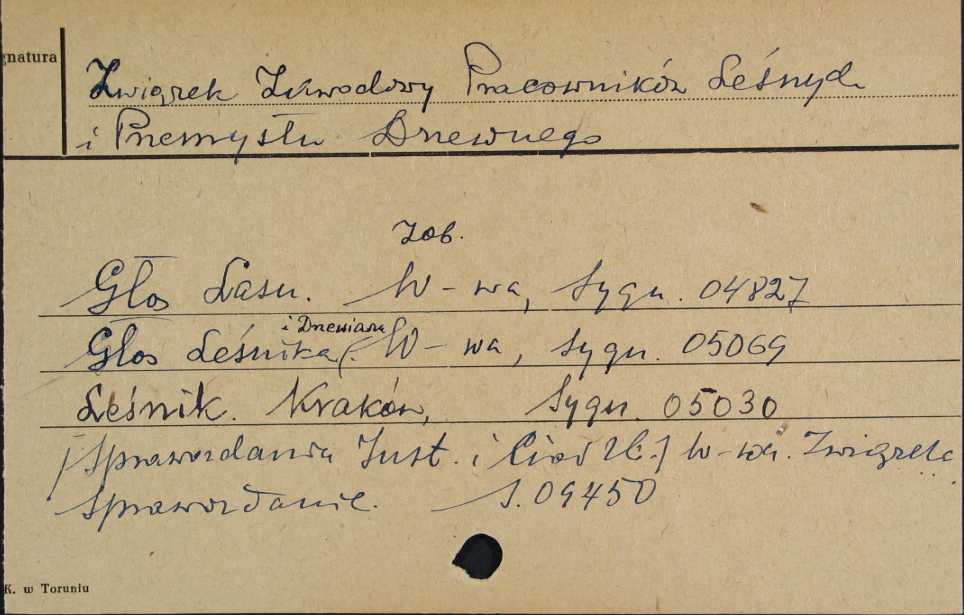 gnatura
Związek Zawodowy Pracowników Leśnych
i Przemysłu Drzewnego
Zob.
Głos Lasu. W-wa, Sygn. 04827
Głos Leśnika i Drzewiarza. W-wa, Sygn. 05069
Leśnik. Kraków, Sygn. 05030
[Sprawozdania Inst. i Ciał Zb.] W-wa. Związek...
Sprawozdanie. S. 09450
K. w Toruniu